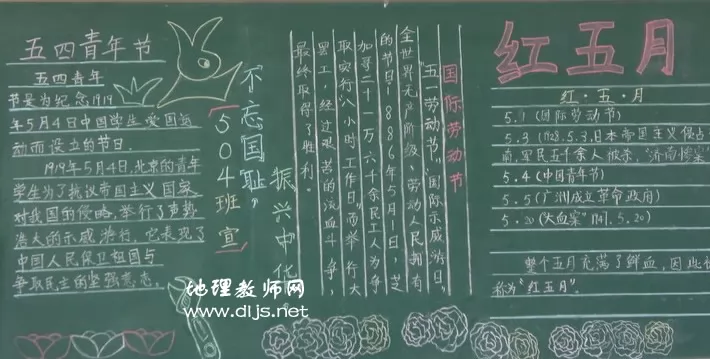 五四青年节
五四青年
节是为纪念1919
年5月4日中国学生爱国运
动而设立的节日.
1919年5月4日,北京的青年
学生为了抗议帝国主义国家
对我国的侵略,举行了声势
浩大的示威游行.它表现了
中国人民保卫祖国与
争取民主的坚强意志.
不忘国耻,
504班宣
振兴中华
国际劳动节
"五一劳动节""国际示威游日"
全世界无产阶级、劳动人民拥有
的节日.1886年5月1日,芝
加哥二十一万六千余民工人为争
取实行八小时工作日,而举行大
罢工,经过艰苦的流血斗争,
最终取得了胜利.
红五月
红·五·月
5.1(国际劳动节)
5.3(1928.5.3.日本帝国主义侵占
南,军民五千余人被杀,"济南惨案"
5.4(中国青年节)
5.5(广州成立革命政府)
5.20("大血案"1941.5.20)
整个五月充满了鲜血,因此
称为"红五月".
地理教师网
www.dljs.net